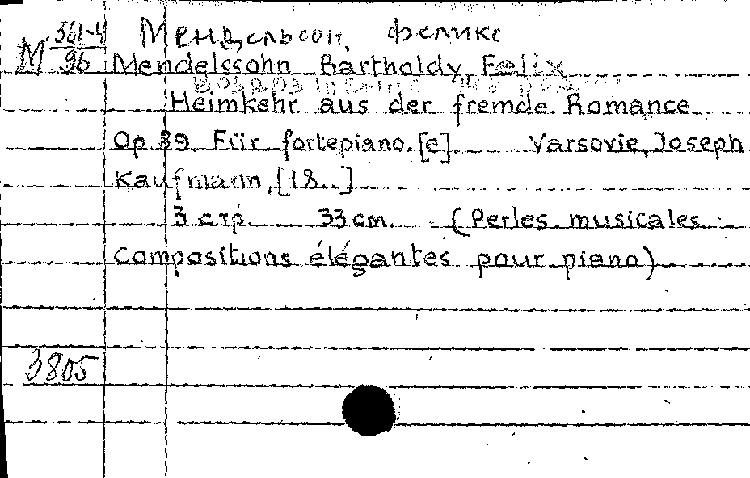 М 561-4/96
Мендельсон, Феликс
Mendelssohn Bartholdy, Felix
Heimkehr aus der fremde. Romance
Op. 89. Für fortepiano. [e] Varsovie, Joseph
Kaufmann, [18..]
3 стр. 33 cm. (Perles musicales
compositions élégantes pour piano)
3805